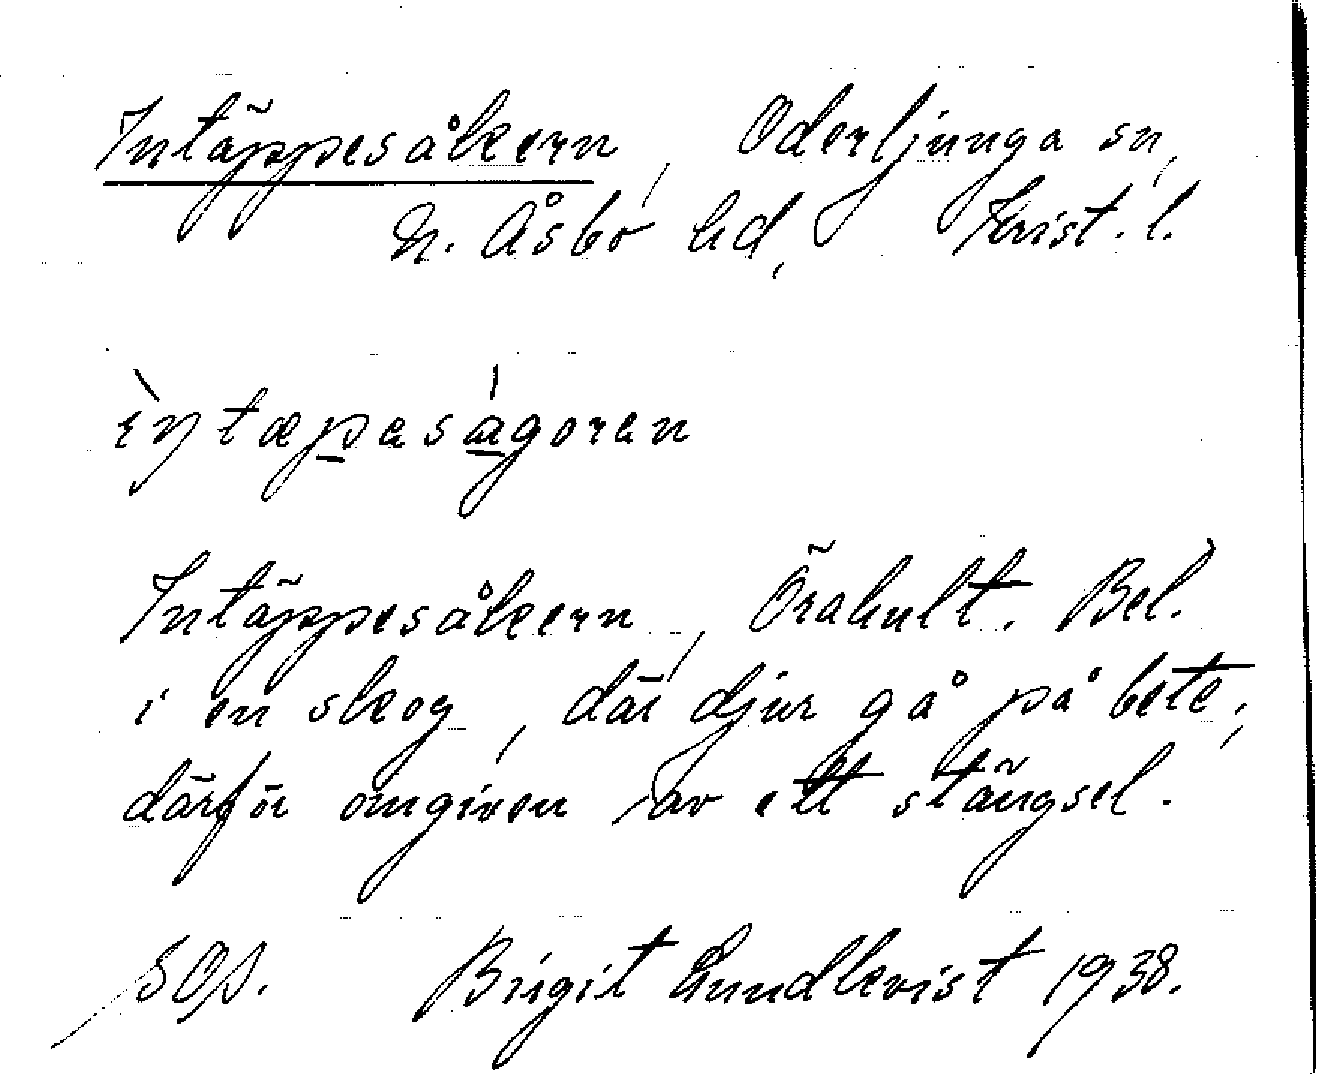 Intäppesåkern, Oderljunga sn,
N. Åsbo hd, Krist. l.
ìntæpaságoran
Intäppesåkern, Örahult. Bel.
i en skog, där djur gå på bete;
därför omgiven av ett stängsel.
SOp. Birgit Lundkvist 1938.